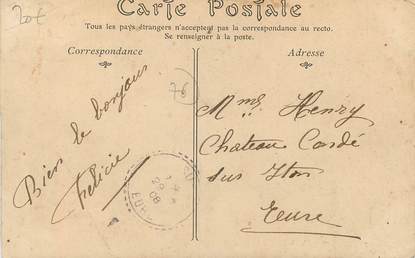 20€
Carte Postale
Tous les pays étrangers n'acceptent pas la correspondance au recto.
Se renseigner à la poste.
Correspondance
Adresse
Bien le bonjour
Félicie
76
Mme Henry
Chateau Condé
sur Iton
Eure
08